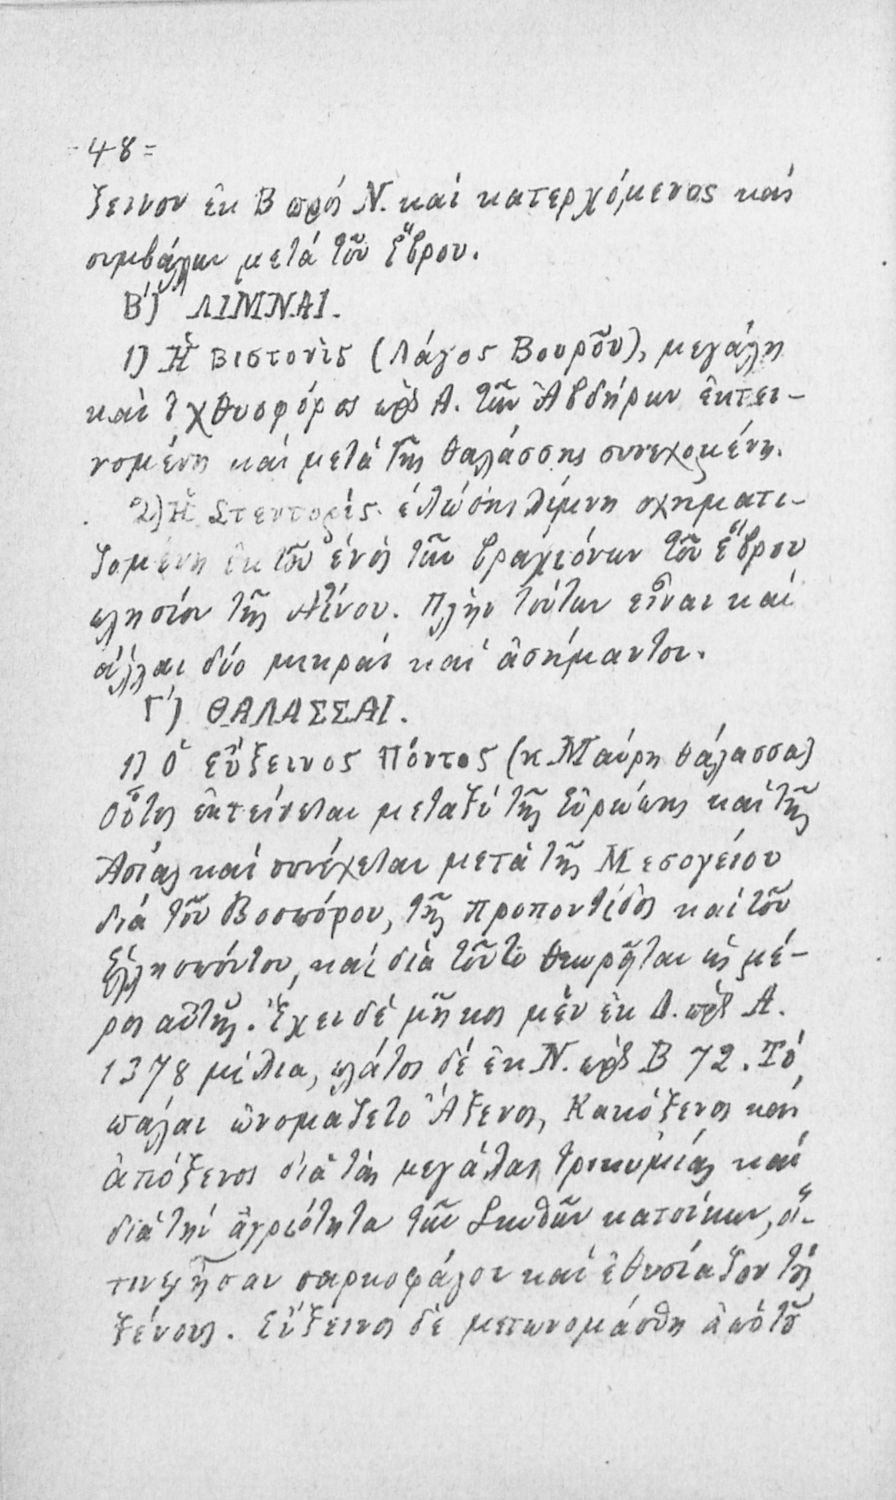 -48=
ξεινον ἐκ Β πρός Ν. καί κατερχόμενος καί
συμβάλλει μετά τοῦ Ἕβρου.
Β′) ΛΙΜΝΑΙ.
1) Ἡ Βιστονὶς (Λάγος Βουροῦ), μεγάλη
καὶ ἰχθυοφόρος πρὸς Α. τῶν Ἀβδήρων ἐκτει-
νομένη καί μετά τῆς θαλάσσης συνεχομένη.
2) Ἡ Στεντορίς ἑλώδης λίμνη σχηματι-
ζομένη ἐκ τοῦ ἑνός τῶν βραχιόνων τοῦ Ἕβρου
πλησίον τῆς Αἴνου. Πλήν τούτων εἶναι καί
ἄλλαι δύο μικραί καί ἀσήμαντοι.
Γ′) ΘΑΛΑΣΣΑΙ.
1) Ὁ Εὔξεινος Πόντος (κ. Μαύρη θάλασσα)
Οὗτος ἐκτείνεται μεταξύ τῆς Εὐρώπης καί τῆς
Ἀσίας καί συνέχεται μετά τῆς Μεσογείου
διά τοῦ Βοσπόρου, τῆς Προποντίδος καί τοῦ
Ἑλλησπόντου, καί διά τοῦτο θεωρῆται ὡς μέ-
ρος αὐτῆς. Ἔχει δέ μῆκος μέν ἐκ Δ. πρὸς Α.
1378 μίλια, πλάτος δέ ἐκ Ν. πρὸς Β 72. Τό
πάλαι ὠνομάζετο Ἄξενος, Κακόξενος καί
ἀπόξενος διά τάς μεγάλας τρικυμίας καί
διά τήν ἀγριότητα τῶν Σκυθῶν κατοίκων, οἵ-
τινες ἦσαν σαρκοφάγοι καί ἐθυσίαζον τούς
ξένους. Εὔξεινος δέ μετωνομάσθη ἀπό τοῦ